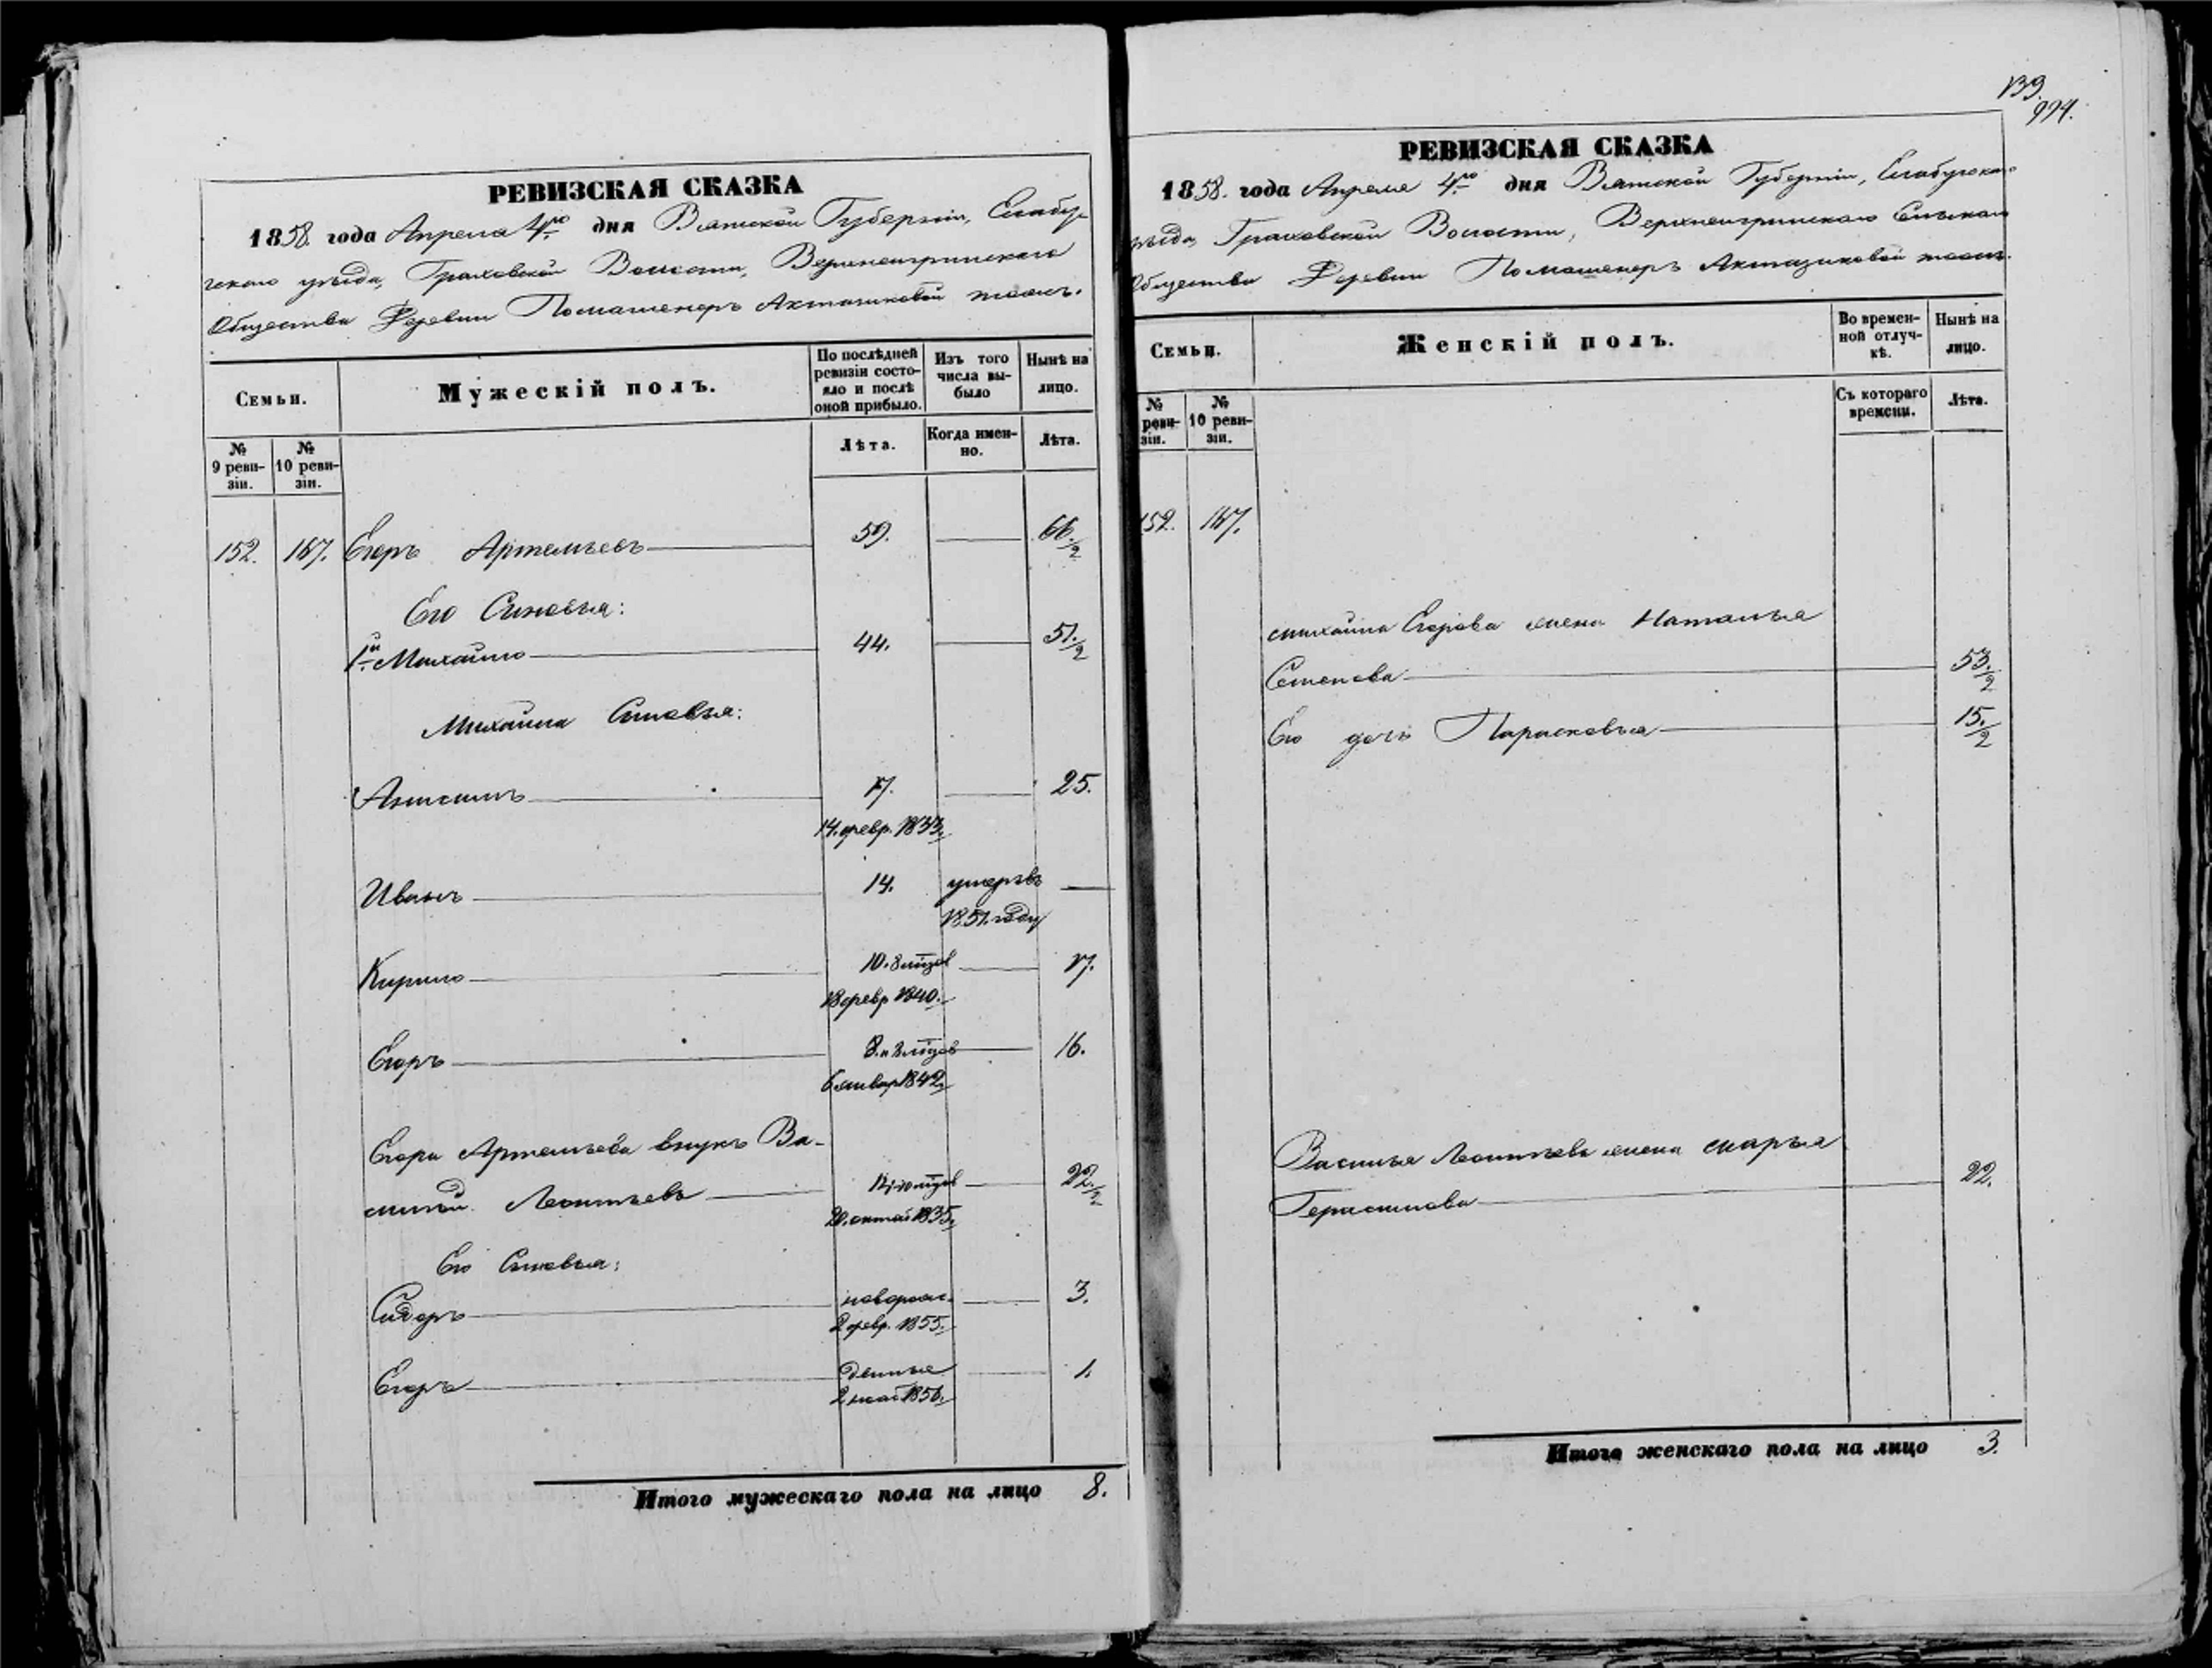 РЕВИЗСКАЯ СКАЗКА
1858. года Апреля 4го дня Вятской Губерніи, Елабуж-
скаго уѣзда, Граховской Волости, Верхнеигринскаго
Общества Деревни Помашенеръ Актазиковой тожъ.
Семьи.
Мужескій полъ.
По послѣдней ревизіи состо-яло и послѣ оной прибыло.
Изъ того числа вы-было
Нынѣ на лицо.
№ 9 реви-зіи.
№ 10 реви-зіи.
Лѣта.
Когда имен-но.
Лѣта.
152. 167. Егоръ Артемьевъ 59. 66./2
Его Сыновья:
1й Михайло 44. 51./2
Михайла Сыновья:
Анисимъ 17. 25.
14. февр. 1833.
Иванъ 14. умеръ въ
1851. году
Кирило 10. 8 мцов 17.
18 февр 1840.
Егоръ 8. и 8 мцов 16.
6 январ 1842.
Егора Артемьева внукъ Ва-
силей Леонтьевъ 22./2
20. октяб 1835.
Его Сыновья:
Сидоръ новорож- 3.
2 февр. 1855.
Егоръ денные 1.
2 май 1856.
Итого мужескаго пола на лицо 8.
139.
994.
РЕВИЗСКАЯ СКАЗКА
1858. года Апреля 4го дня Вятской Губерніи, Елабужскаго
уѣзда, Граховской Волости, Верхнеигринскаго Сельскаго
Общества Деревни Помашенеръ Актазиковой тожъ.
Семьи.
Женскій полъ.
Во времен-ной отлуч-кѣ.
Нынѣ на лицо.
№ реви-зіи.
№ 10 реви-зіи.
Съ котораго времени.
Лѣта.
152. 167.
Михайла Егорова жена Наталья
Семенова 53./2
Его дочь Парасковья 15./2
Василья Леонтьева жена Марья
Герасимова 22.
Итого женскаго пола на лицо 3.